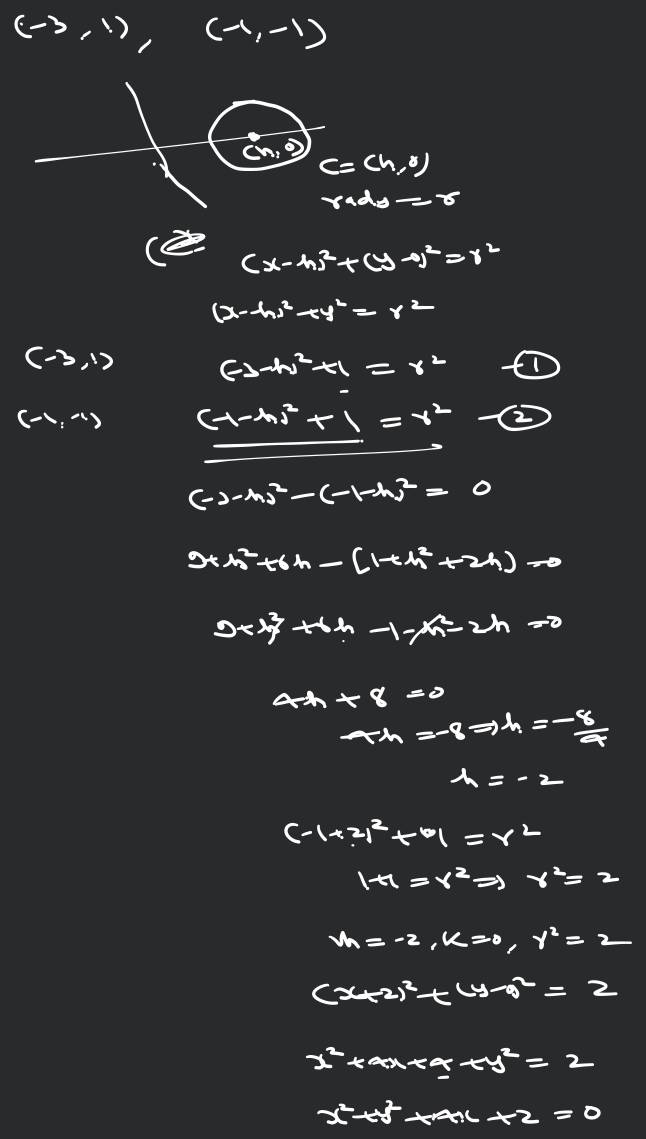 (-3, 1), (-1, -1)
(h, 0)
C = (h, 0)
radius = r
(x-h)² + (y-0)² = r²
(x-h)² + y² = r²
(-3, 1) (-3-h)² + 1 = r² -①
(-1, -1) (-1-h)² + 1 = r² -②
(-3-h)² - (-1-h)² = 0
9+h²+6h - [1+h²+2h) = 0
9+h²+6h -1-h²-2h = 0
4h + 8 = 0
4h = -8 ⇒ h = -8/4
h = -2
(-1+2)² + 1 = r²
1+1 = r² ⇒ r² = 2
h = -2, K = 0, r² = 2
(x+2)² + (y-0)² = 2
x² + 4x + 4 + y² = 2
x² + y² + 4x + 2 = 0